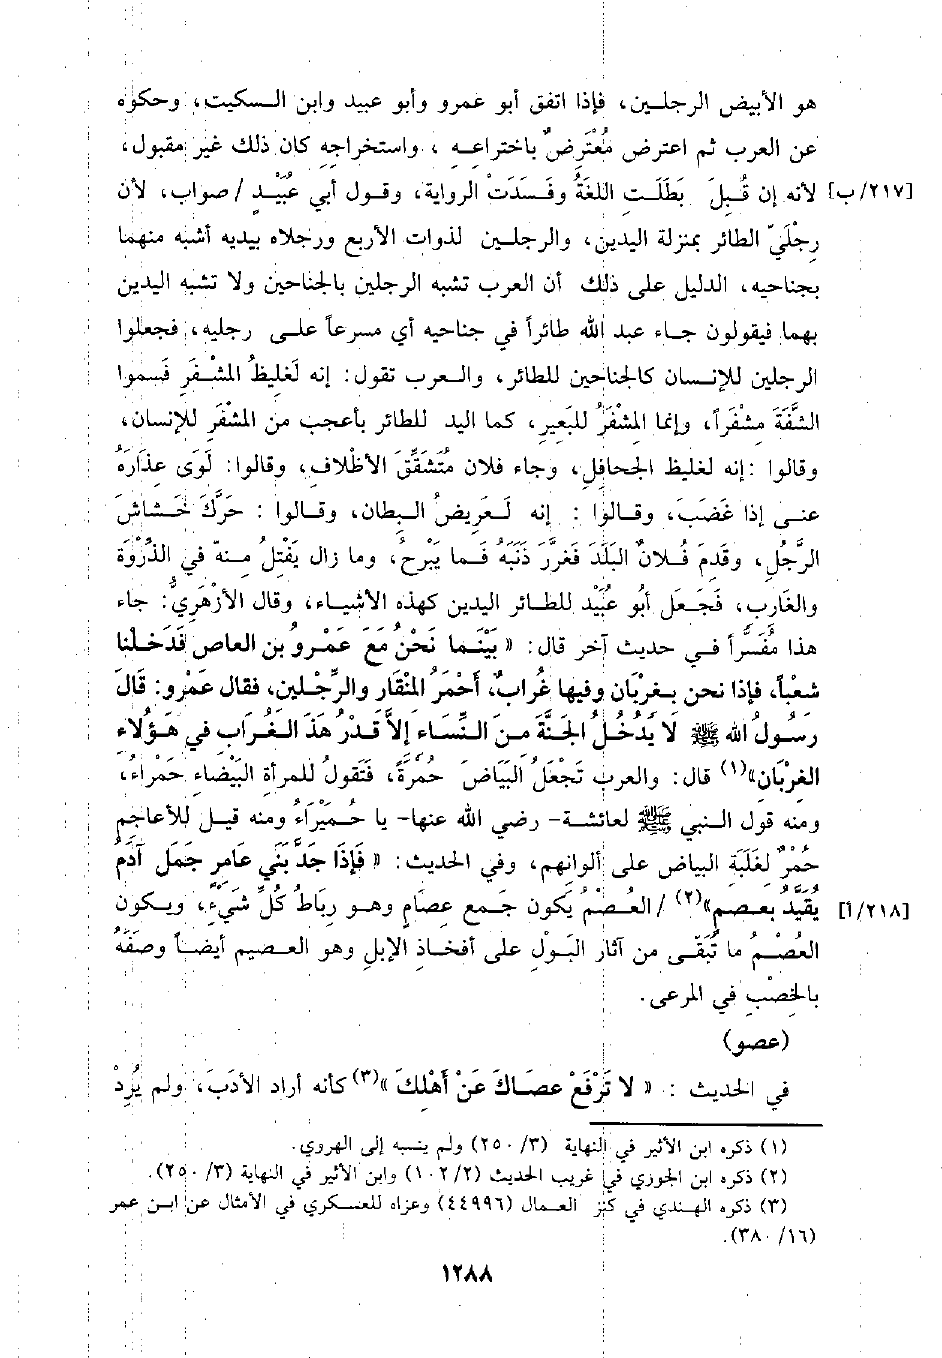 هو الأبيض الرجلين، فإذا اتفق أبو عمرو وأبو عبيد وابن السكيت، وحكوه
عن العرب ثم اعترض مُعْتَرِضٌ باختراعه ، واستخراجه كان ذلك غير مقبول،
[٢١٧/ب] لأنه إن قُبِلَ بَطَلَت اللغَةُ وفَسَدَتْ الرواية، وقول أبي عبَيْدٍ / صواب، لأن
رِجْلَيّ الطائر بمنزلة اليدين، والرجلين لذوات الأربع ورجلاه بيديه أشبه منهما
بجناحيه، الدليل على ذلك أن العرب تشبه الرجلين بالجناحين ولا تشبه اليدين
بهما فيقولون جاء عبد الله طائراً في جناحيه أي مسرعاً على رجليه، فجعلوا
الرجلين للإنسان كالجناحين للطائر، والعرب تقول: إنه لَغليظُ المشْفَرِ فَسموا
الشَّفَةَ مشْفَراً، وإنما المشْفَرُ للبَعيرِ، كما اليد للطائر بأعجب من المشْفَرِ للإنسان،
وقالوا :إنه لغليظ الجحافِل، وجاء فلان مُتَشَقِّقَ الأظْلافِ، وقالوا: لَوَى عذَارَهُ
عنى إذا غَضَبَ، وقالوا : إنه لَعَرِيضُ البِطان، وقالوا : حَرَّكَ خَشاشَ
الرَّجُلِ، وقَدمَ فُلانٌ البَلَدَ فَغرَّرَ ذَنَبَهُ فَما يَبْرحُ، وما زال يَفْتِلُ منهُ في الذُرْوَةِ
والغَارِبِ، فَجَعل أبُو عُبَيْد للطائر اليدين كهذه الأشياء، وقال الأزْهَرِيُّ: جاء
هذا مُفَسَّراً في حديث آخر قال: « بَيْنَما نَحْنُ مَع عَمْرو بن العاص فَدَخلْنا
شعْباً، فإذا نحن بغرْبَان وفيها غُرابٌ، أحْمَرُ المنْقَار والرِّجْلين، فقال عَمْرو: قَالَ
رَسُولُ الله ﷺ لَا يَدْخُلُ الجَنَّةَ منَ النِّسَاء إلاَّ قَدْرُ هَذَ الغُراب في هَؤُلاء
الغرْبَان»(١) قال: والعرب تَجْعَلُ البَيَاضَ حُمْرَةً، فَتَقُولُ للمرأة البَيْضَاء حَمْراء،
ومنه قول النبي ﷺ لعائشة- رضي الله عنها- يا حُمَيْرَاءُ ومنه قيل للأعاجم
حُمْرٌ لغَلَبَة البياض على ألوانهم، وفي الحديث: « فَإذَا جَدُّ بَني عامر جَمَل آدَمُ
[٢١٨/أ] يقَيَّدُ بعصم»(٢) / العُصُمُ يكون جَمع عِصَام وهو رباطُ كُلِّ شيْءٍ، ويكون
العُصْمُ ما تُبَقّى من آثار البَوْل على أفخاذ الإبلِ وهو العصيم أيضاً وصفَهُ
بالخصْبِ في المرعى.
(عصو)
في الحديث : « لا تَرْفَعْ عصَاكَ عَنْ أَهْلكَ »(٣) كأنه أراد الأدَبَ، ولم يُرِدْ
(١) ذكره ابن الأثير في النهاية (٣/ ٢٥٠) ولم ينسبه إلى الهروي.
(٢) ذكره ابن الجوزي في غريب الحديث (٢/ ١٠٢) وابن الأثير في النهاية (٣/ ٢٥٠).
(٣) ذكره الهندي في كنز العمال (٤٤٩٩٦) وعزاه للعسكري في الأمثال عن ابن عمر
(١٦/ ٣٨٠).
١٢٨٨